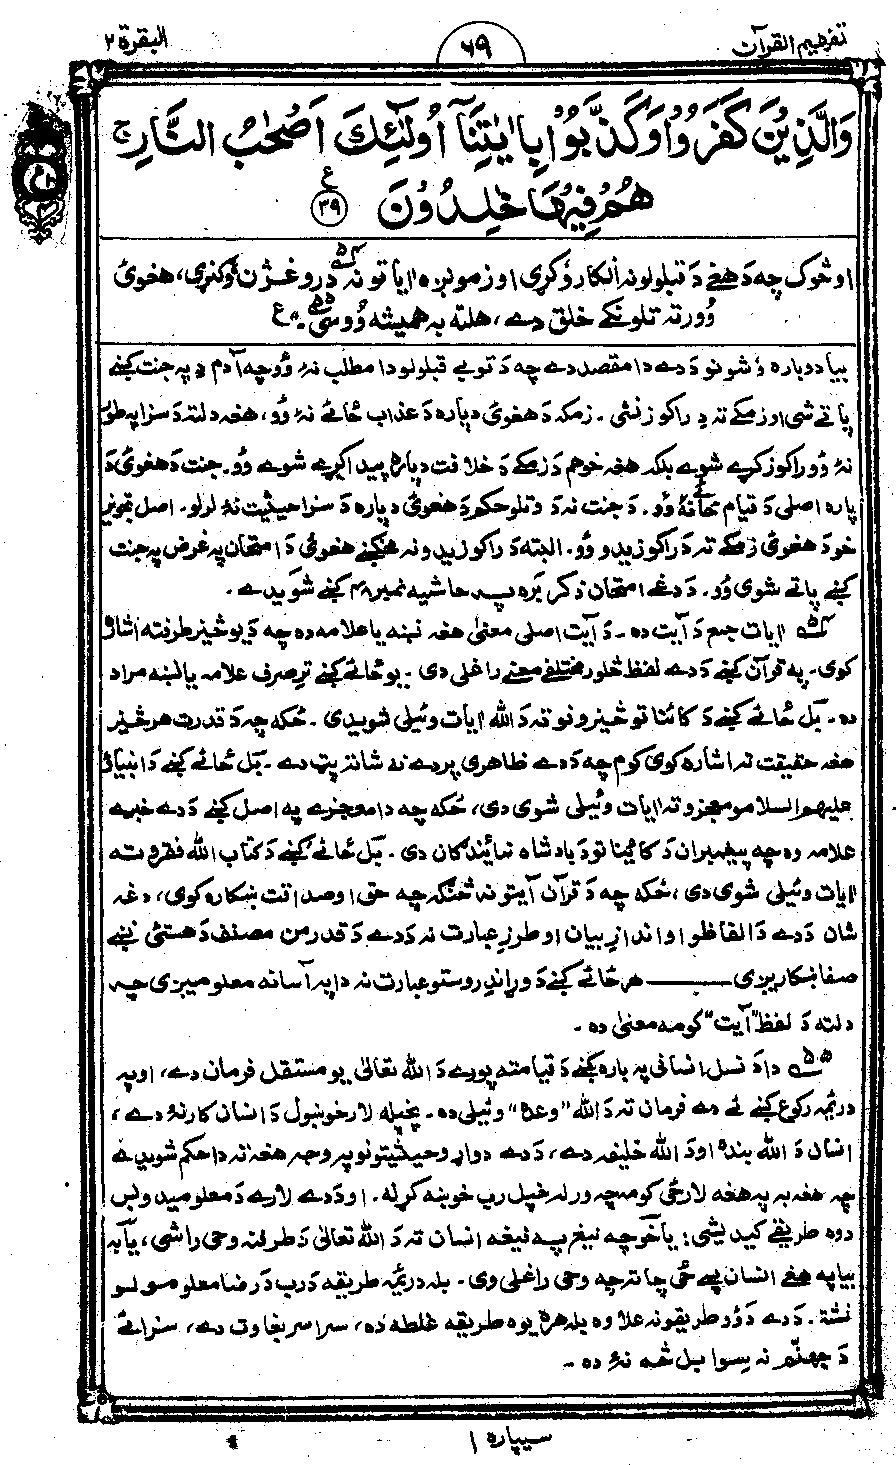 تفهيم القرآن
٦٩
البقرة ٢
وَالَّذِيْنَ كَفَرُوْا وَكَذَّبُوْا بِاٰيٰتِنَآ اُولٰٓئِكَ اَصْحٰبُ النَّارِ ج
هُمْ فِيْهَا خٰلِدُوْنَ ع ٣٩
او څوک چه د هغے د قبلولو نه انکار وُکړى او زمونږه اٰياتونه ۵۴ دروغژن وُګنړى، هغوئ
دَ وور ته تلونکے خلق دے، هلته به هميشه وُوسى۔ ۵۵
بيا دوباره وُ شو نو دَ دے دا مقصد دے چه دَ توبے قبلولو دا مطلب نۀ وُو چه آدم دِ په جنت کښے
پاتے شى او زمکے ته دِ راکوز نشى۔ زمکه دَ هغوئ دپاره دَ عذاب ځائے نۀ وُو، هغه دلته دَ سزا په طور
نۀ وُو راکوز کړے شوے بلکه هغه خو هم دَ زمکے دَ خلافت دپاره پيدا کړے شوے وُو۔ جنت دَ هغوئ دَ
پاره اصلى دَ قيام ځائے نۀ وُو۔ دَ جنت نه دَ وتلو حکم دَ هغوئ دپاره دَ سزا حيثيت نۀ لرلو۔ اصل تجويز
خو دَ هغوئ زمکے ته دَ راکوزيدو وُو۔ البته دَ راکوزيدو نه هغوئ دَ امتحان په غرض په جنت
کښے پاتے شوى وُو۔ دَ دغے امتحان ذکر بره په حاشيه نمبر ۴۸ کښے شوَيدے۔
۵۴ اٰيات جمع دَ آيت ده۔ دَ آيت اصلى معنىٰ هغه نښه يا علامه ده چه دَ يو څيز طرف ته اشاره
کوى۔ په قرآن کښے دَ دے لفظ څلور مختلفے معنے راغلى دى۔ يو ځائے کښے تر صرف علامه يا نښه مراد
ده۔ بل ځائے کښے دَ کائناتو څيزونو ته دَ الله اٰيات وئيلى شويدى۔ ځکه چه دَ قدرت هر څيز
هغه حقيقت ته اشاره کوى کوم چه دَ دے ظاهرى پردے نه شاته پټ دے۔ بل ځائے کښے دَ انبيائے
عليهم السلامو معجزو ته اٰيات وئيلى شوى دى، ځکه چه دا معجزے په اصل کښے دَ دے خبرے
علامه وه چه پيغمبران دَ کائيناتو دَ بادشاه نمائندګان دى۔ بل ځائے کښے دَ کتاب الله فقرو ته
اٰيات وئيلى شوى دى، ځکه چه دَ قرآن آيتونه څنګه چه حق او صداقت ښکاره کوى، دغه
شان دَ دے دَ الفاظو او اندازِ بيان او طرزِ عبارت نه دَ دے دَ قدرمن مصنف دَ هستئ نښے
صفا ښکاريږى ــــــ هر ځائے کښے دَ وړاندِ روستو عبارت نه دا په آسانه معلوميږى چه
دلته دَ لفظ "آيت" کومه معنىٰ ده۔
۵۵ دا دَ نسلِ انسانى په باره کښے دَ قيامته پورے دَ الله تعالىٰ يو مستقل فرمان دے، او په
دريمه رکوع کښے ئے دے فرمان ته دَ الله "وعده" وئيلى ده۔ پخپله لار خوښول دَ انسان کار نۀ دے،
انسان دَ الله بنده او دَ الله خليفه دے، دَ دے دواړو حيثيتونو په وجه هغۀ ته دا حکم شويدے
چه هغه به په هغه لار ځى کومه چه ورله خپل رب خوښه کړے۔ او دَ دے لارے دَ معلوميدو بس
دوه طريقے کيديشى: يا خو چه نيغ په نيغه انسان ته دَ الله تعالىٰ دَ طرفنه وحى راشى، يا به
بيا په هغے انسان پسے ځى چاته چه وحى راغلى وى۔ بله دريمه طريقه دَ رب دَ رضا معلومولو
نشته۔ دَ دے دَوؤ طريقو نه علاوه بله هره يوه طريقه غلطه ده، سراسر بغاوت دے، سزا ئے
دَ جهنّم نه سِوا بل څه نۀ ده۔
سيپاره ١